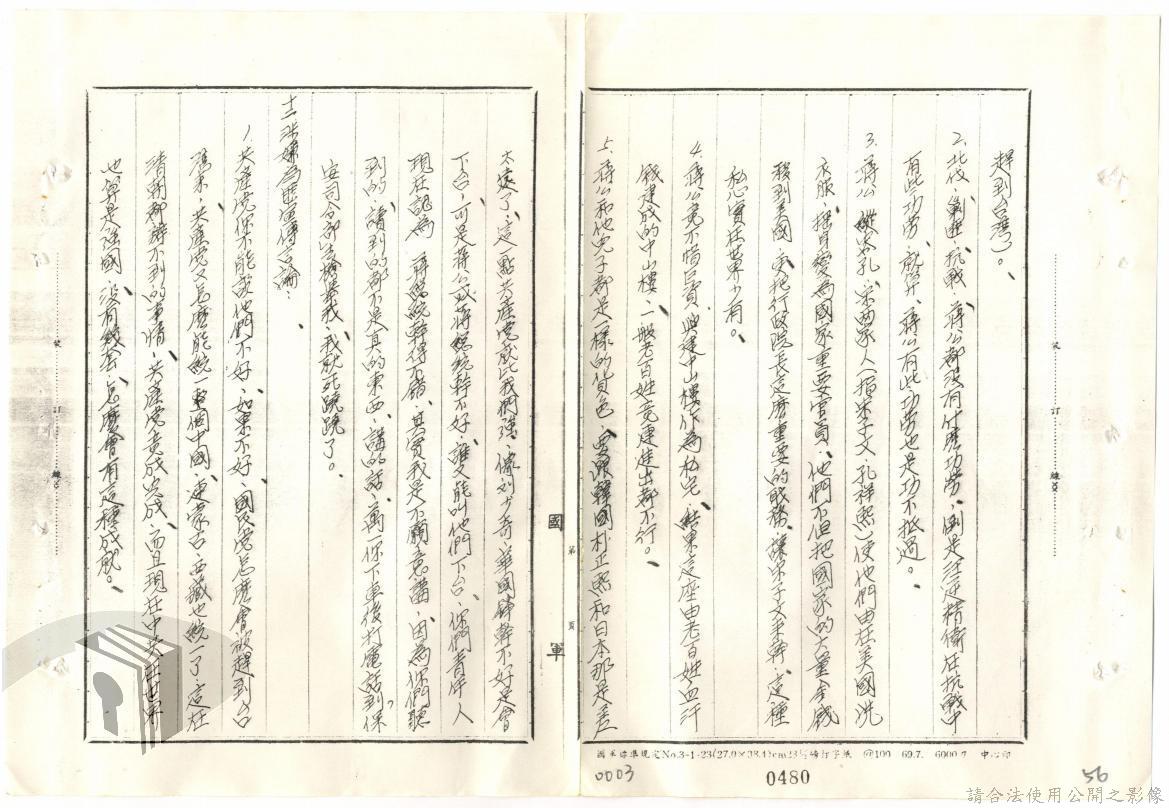 趕到台灣。
2.北伐、剿匪、抗戰、蔣公都沒有什麼功勞，倒是汪逆精衛在抗戰中
有些功勞，就算、蔣公有些功勞也是功不抵過。
3.蔣公縱容孔、宋兩家人（指宋子文、孔祥熙）使他們由在美國洗
衣服、搖身變為國家重要官員、他們不但把國家的大量金錢
移到美國、更把行政院長這麼重要的職務、讓宋子文來幹、這種
私心實在世界少有。
4.蔣公竟不惜巨資、興建中山樓作為私宅、結果這座由老百姓血汗
錢建成的中山樓、一般老百姓竟連進出都不行。
5.蔣公和他兒子都是一樣的貨色，要跟韓國朴正熙和日本那是差
太遠了、這一點共產黨就比我們強、像刘少奇、華國鋒幹不好是會
下台、可是蔣公或蔣總統幹不好、誰又能叫他們下台、你們青年人
現在認為、蔣總統幹得不錯、其實我是不願意講、因為你們聽
到的、讀到的都不是真的東西、講的話、萬一你下車後打電話到保
安司令部去檢舉我、我就死蹺蹺了。
十二、涉嫌為匪宣傳言論：
1.共產黨你不能說他們不好、如果不好、國民黨怎麼會被趕到台
灣來、共產黨又怎麼能統一整個中國、連蒙古、西藏也統一了、這在
清朝都辦不到的事情、共產黨竟成完成、而且現在中共在世界
也算是強國、沒有錢否、怎麼會有這種成就。
國軍
第 頁
裝 訂 線
裝 訂 線
國軍標準規定No.3-1-23(27.0×38.4)cm23行橫打字紙 @100 69.7. 6000.7 中心印
0003
0480
56
請合法使用公開之影像